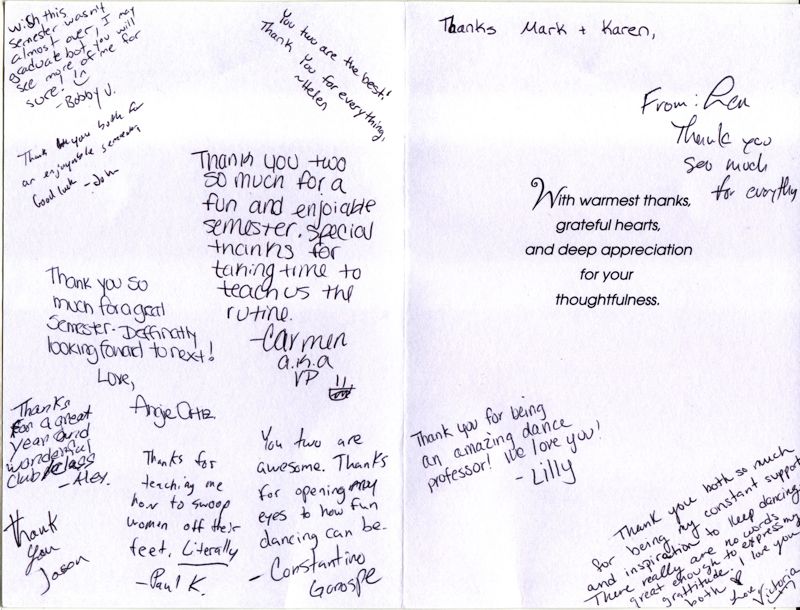 Wish this
semester wasn't
almost over, I may
graduate but you will
see more of me for
sure!
-Bobby V.
You two are the best!
Thank you for everything,
~Helen
Thank you both for
an enjoyable semester
Good luck -John
Thank you two
so much for a
fun and enjoiable
semester. Special
thanks for
taking time to
teach us the
rutine.
-Carmen
a.k.a
VP
Thank you so
much for a great
semester. Deffinatly
looking foward to next!
Love,
Angie Ortiz.
Thanks
for a great
year and
wonderful
club/class
- Alex.
Thank
you
Jason
Thanks for
teaching me
how to swoop
women off their
feet. Literally
-Paul K.
You two are
awesome. Thanks
for opening my
eyes to how fun
dancing can be.
- Constantino
Gorospe
Thanks Mark + Karen,
From:
Thank you
soo much
for everything
With warmest thanks,
grateful hearts,
and deep appreciation
for your
thoughtfulness.
Thank you for being
an amazing dance
professor! We love you!
- Lilly
Thank you both so much
for being my constant support
and inspiration to keep dancing.
There really are no words
great enough to express my
grattitude. I love you
both
Love, Victoria